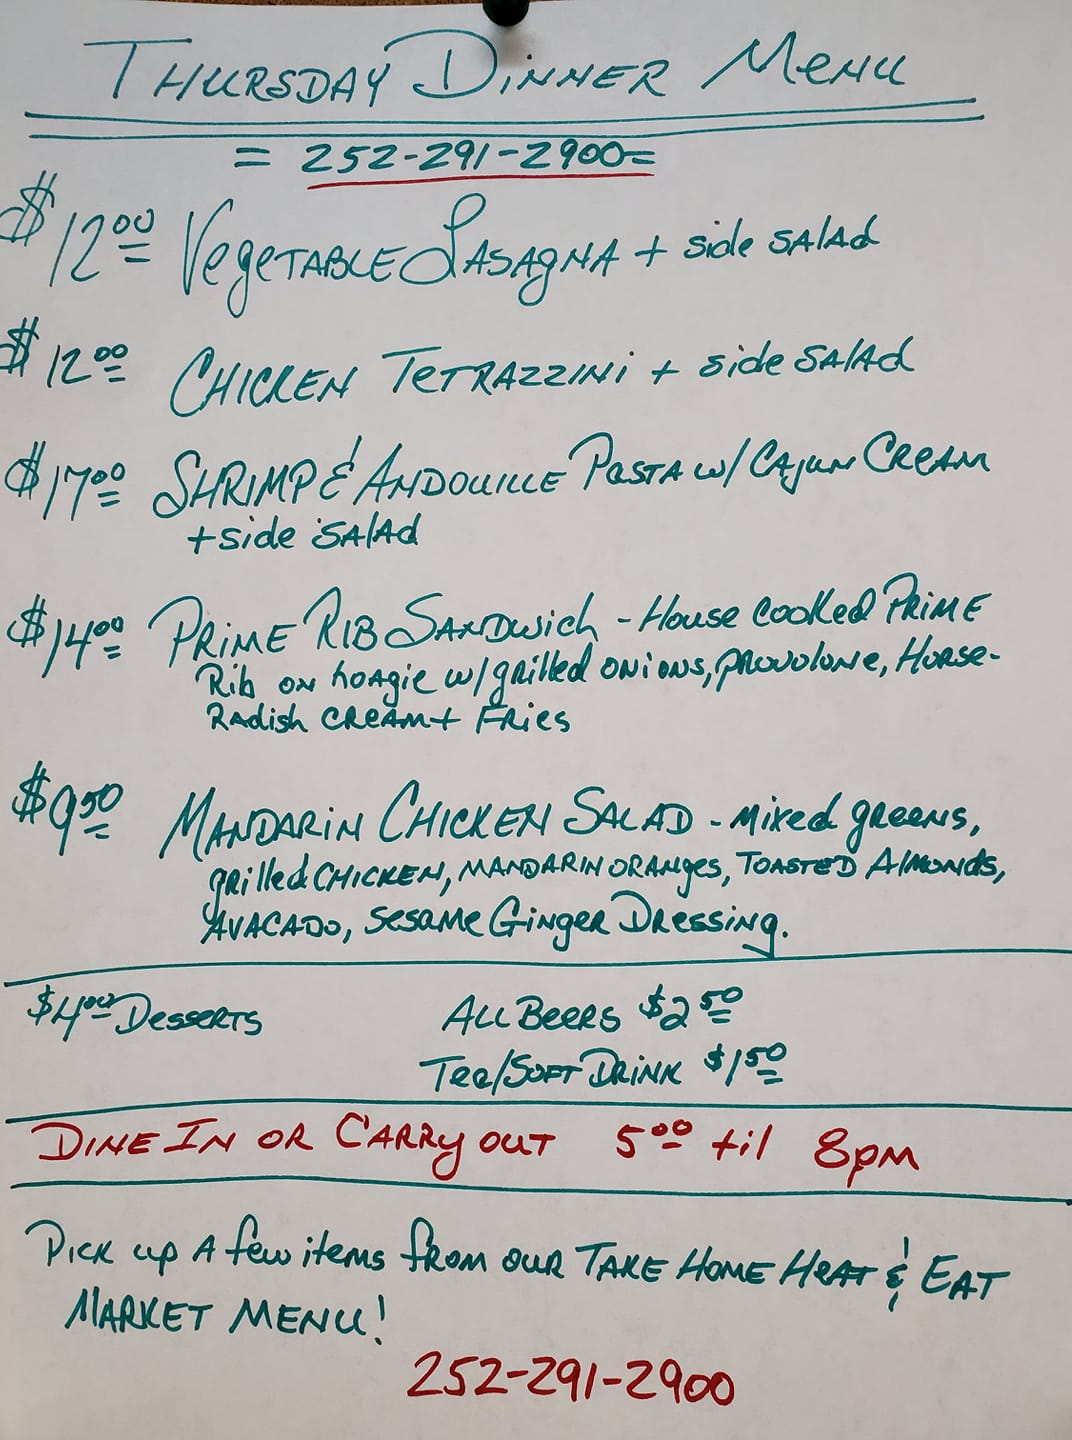 THURSDAY DINNER MENU
= 252-291-2900=
$12.00 VegeTABLE LASAgNA + side SALAd
$12.00 CHICKEN TETRAZZINi + side SALAd
$17.00 SHRIMP & ANDOUILLE PASTA w/ CAJUN CREAM
+ side SALAd
$14.00 PRIME RIB SANDwich - House cooked PRIME
Rib on hoagie w/ grilled onions, provolone, Horse-
Radish CREAM + FRies
$9.50 MANDARIN CHICKEN SALAD - Mixed greens,
grilled CHICKEN, MANDARIN ORANges, TOASTED AlMONds,
AVACADO, Sesame Ginger Dressing.
$4.00 Desserts ALL BeeRs $2.50
Tea/SOFT DRINK $1.50
DINE IN OR CARRy OUT 5:00 til 8pm
Pick up A few items from our TAKE HOME HEAT & EAT
MARKET MENU!
252-291-2900